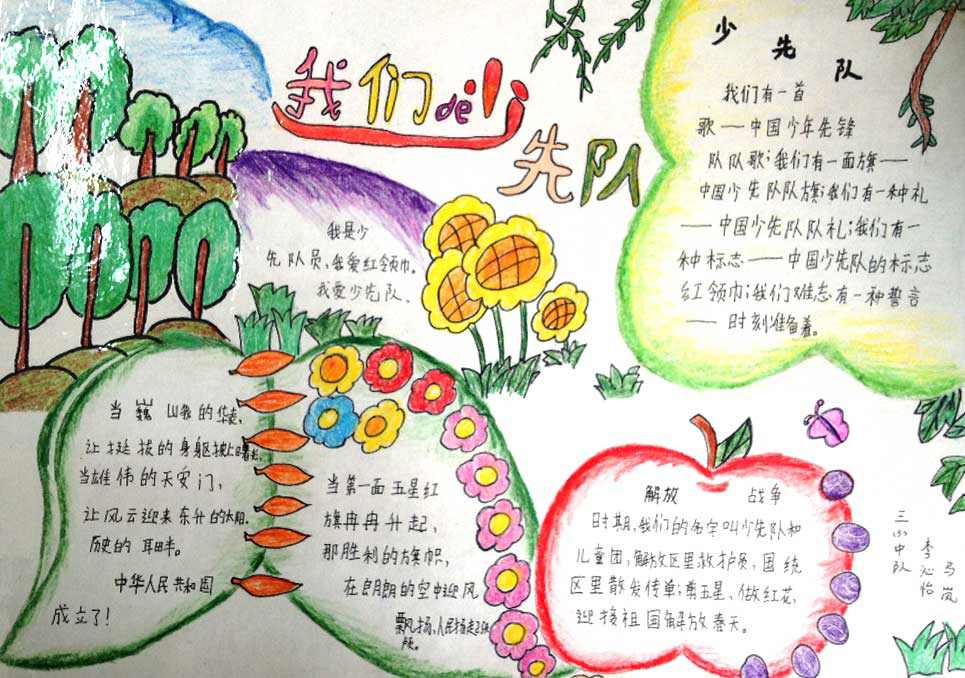 我们de小
先队
少先队
我们有一首
歌——中国少年先锋
队队歌;我们有一面旗——
中国少先队队旗;我们有一种礼
——中国少先队队礼;我们有一
种标志——中国少先队的标志
红领巾;我们难忘有一种誓言
——时刻准备着。
我是少
先队员,我爱红领巾。
我爱少先队.
当巍山峨的华表,
让挺拔的身躯披上曙光,
当雄伟的天安门,
让风云迎来东升的太阳.
历史的
中华人民共和国
成立了!
当第一面五星红
旗冉冉升起,
那胜利的旗帜,
在朗朗的空中迎风
飘扬,人民扬起
解放 战争
时期,我们的名字叫少先队和
儿童团,解放区里救护员,国统
区里散发传单;剪五星、做红花,
迎接祖国解放春天。
三小中队
李沁怡
马岚